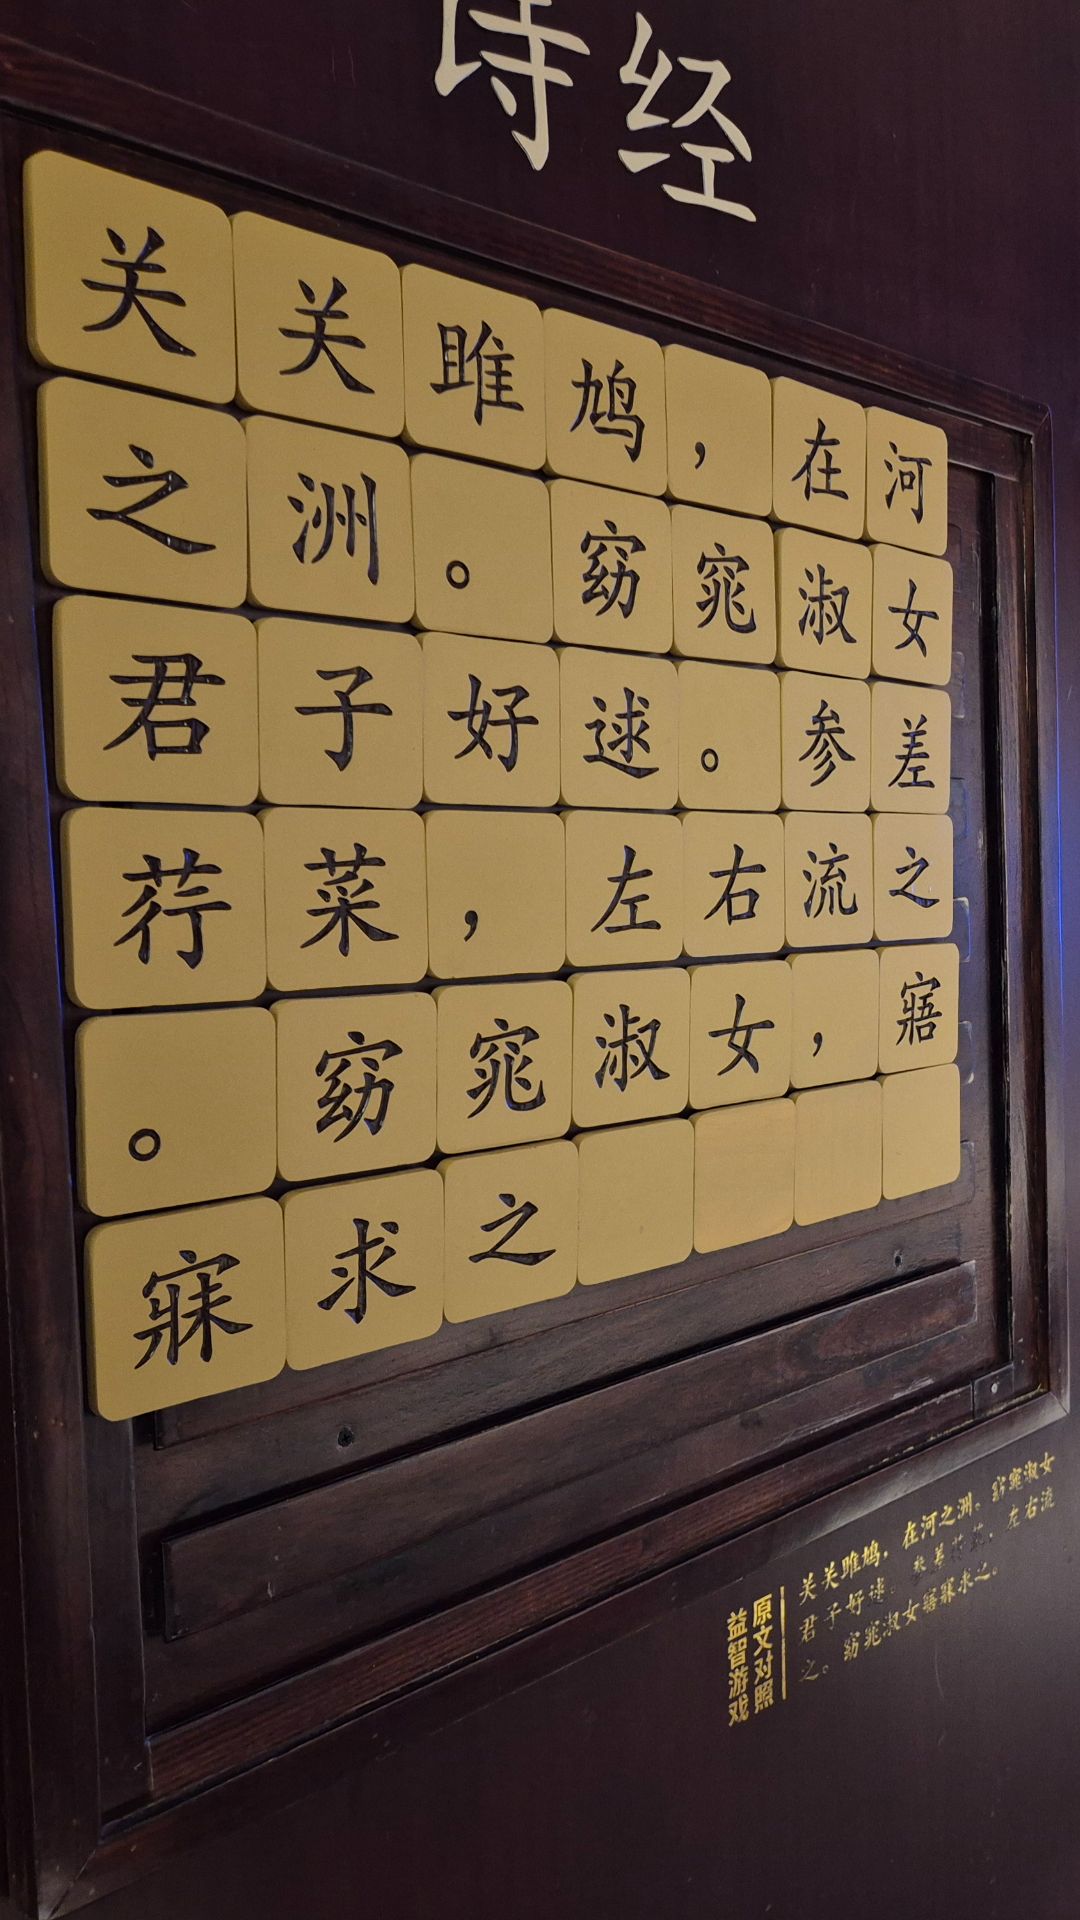 诗经
关关雎鸠，在河
之洲。窈窕淑女
君子好逑。参差
荇菜，左右流之
。窈窕淑女，寤
寐求之
原文对照
益智游戏
关关雎鸠，在河之洲。窈窕淑女
君子好逑。参差荇菜，左右流
之。窈窕淑女寤寐求之。